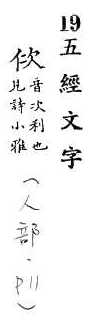 19五經文字
佽
音次利也
見詩小雅
（人部·P11）